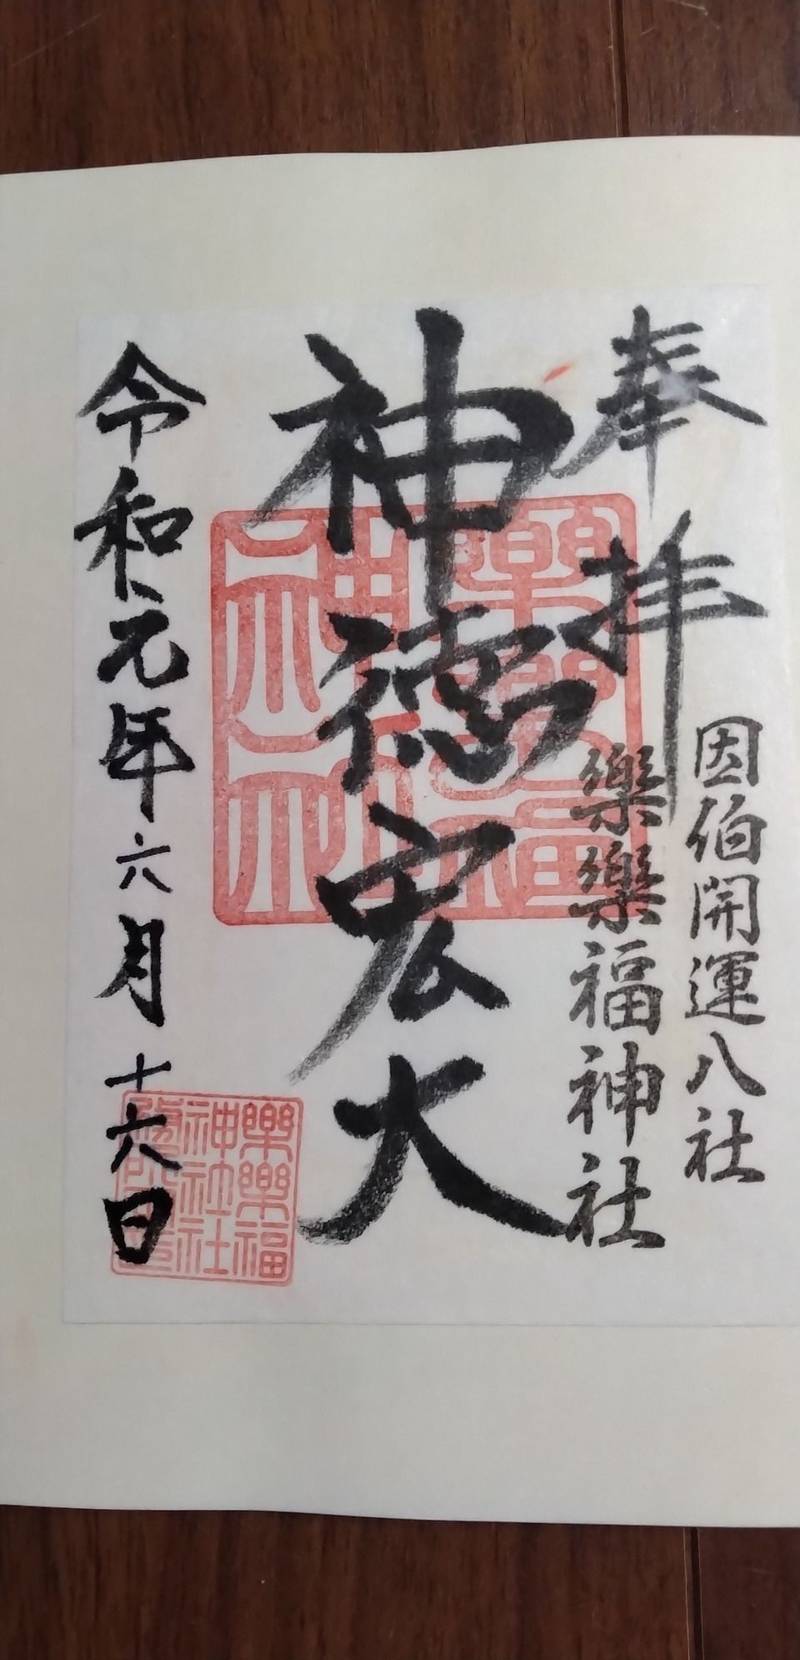 奉拝
因伯開運八社
樂樂福神社
神徳宏大
令和元年六月十六日
樂樂福
神社社